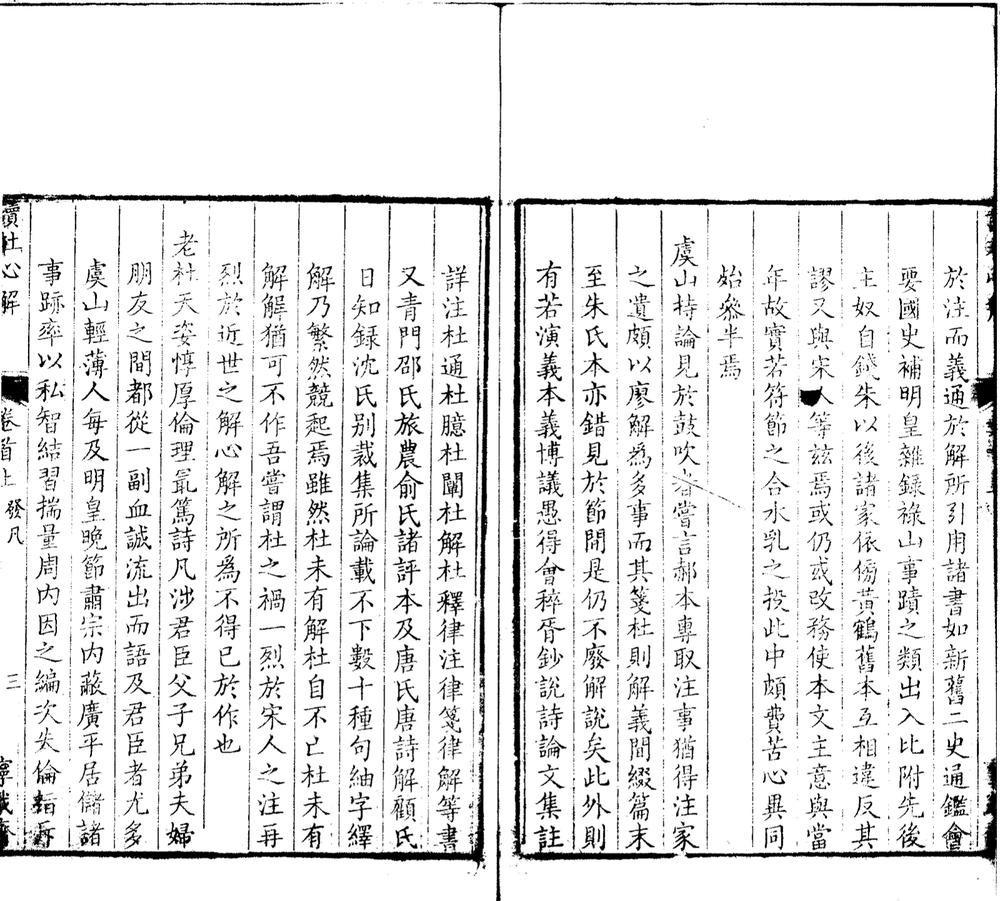 於注而義通於解所引用諸書如新舊二史通鑑會
要國史補明皇雜録祿山事蹟之類出入比附先後
主奴自錢朱以後諸家依傍黃鶴舊本互相違反其
謬又與宋人等兹焉或仍或改務使本文主意與當
年故實若符節之合水乳之投此中頗費苦心異同
始參半焉
虞山持論見於鼓吹者嘗言郝本專取注事猶得注家
之遺頗以廖解為多事而其箋杜則解義間綴篇末
至朱氏本亦錯見於節間是仍不廢解說矣此外則
有若演義本義博議愚得會稡胥鈔說詩論文集註
詳注杜通杜臆杜闡杜解杜釋律注律箋律解等書
又青門邵氏旅農俞氏諸評本及唐氏唐詩解顧氏
日知録沈氏别裁集所論載不下數十種句紬字繹
解乃繁然競起焉雖然杜未有解杜自不亡杜未有
解解猶可不作吾嘗謂杜之禍一烈於宋人之注再
烈於近世之解心解之所為不得已於作也
老杜天姿惇厚倫理最篤詩凡涉君臣父子兄弟夫婦
朋友之間都從一副血誠流出而語及君臣者尤多
虞山輕薄人每及明皇晚節肅宗内蔽廣平居儲諸
事跡率以私智結習揣量周内因之編次失倫指
讀杜心解
卷首上
發凡
三
寧我齋